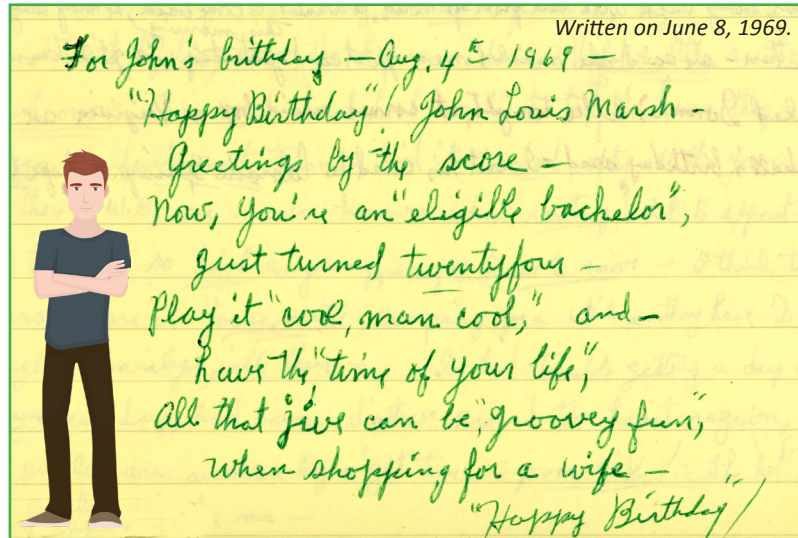 Written on June 8, 1969.
For John's birthday — Aug. 4th 1969 —
"Happy Birthday"! John Louis Marsh —
Greetings by the score —
Now, you're an "eligible bachelor",
just turned twentyfour —
Play it "cool, man cool," and —
have the "time of your life",
All that jive can be, "groovey fun",
when shopping for a wife —
"Happy Birthday"!